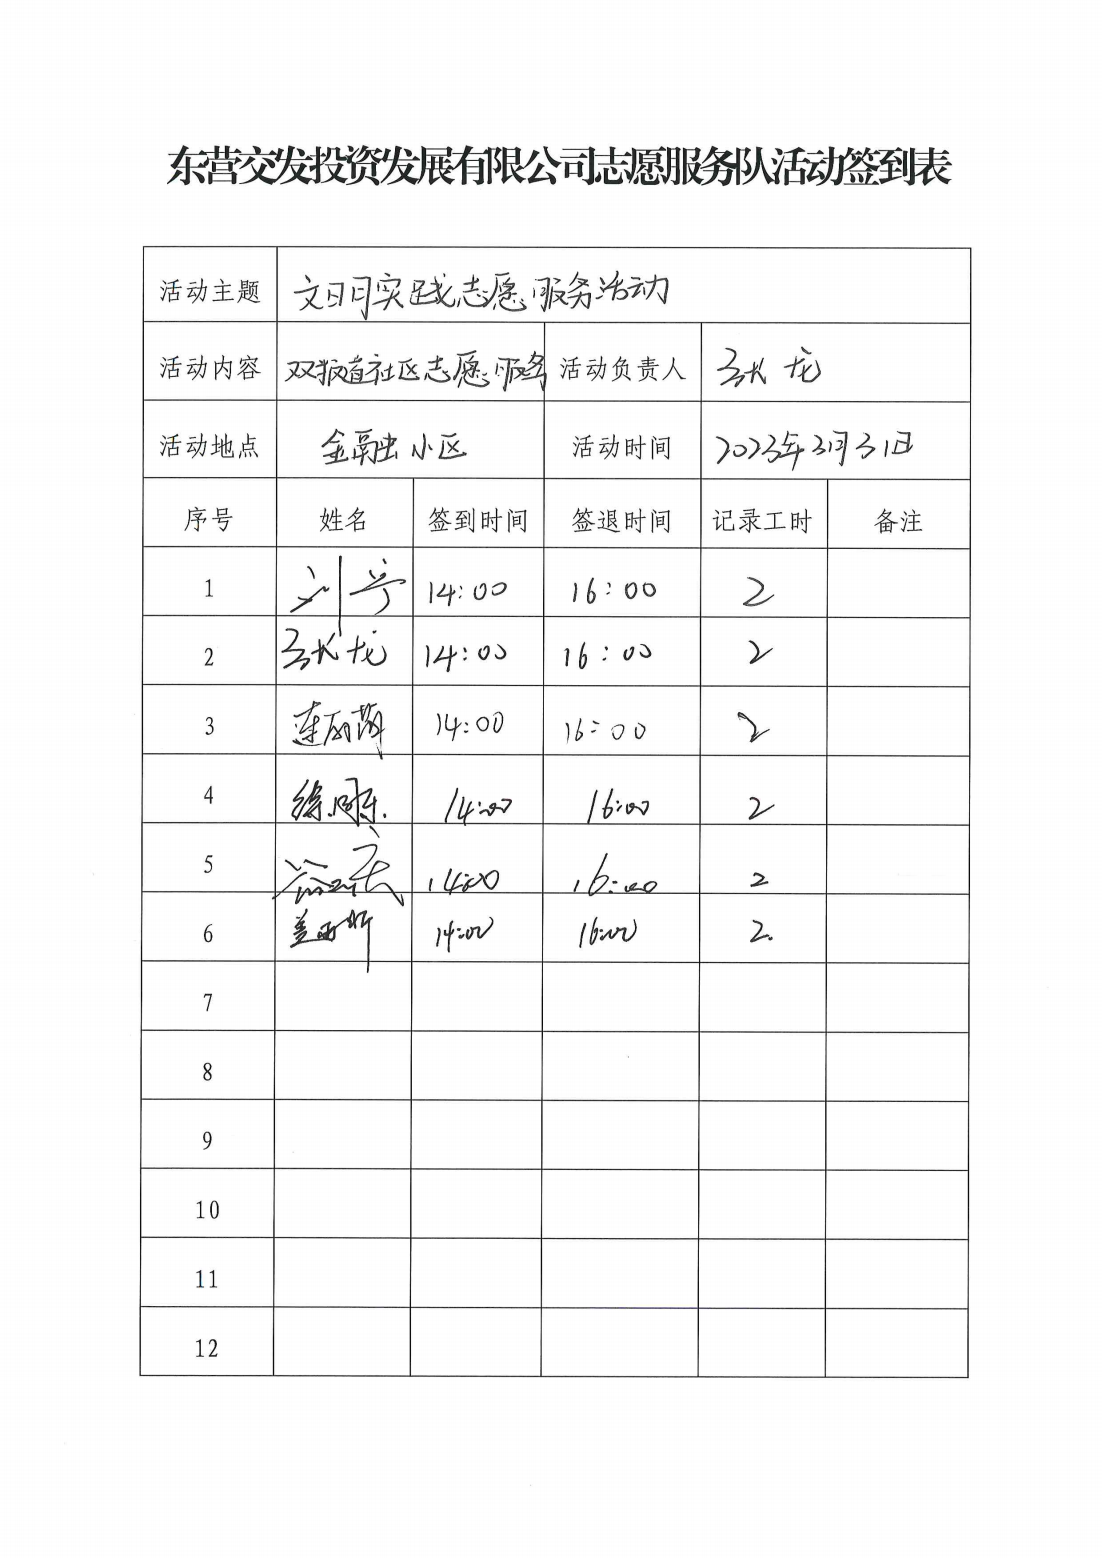 东营交发投资发展有限公司志愿服务队活动签到表
活动主题 文明实践志愿服务活动
活动内容 双报道社区志愿服务 活动负责人 龙
活动地点 金融小区 活动时间 2023年3月31日
序号 姓名 签到时间 签退时间 记录工时 备注
1 刘宁 14:00 16:00 2
2 龙 14:00 16:00 2
3 14:00 16:00 2
4 徐 14:00 16:00 2
5 14:00 16:00 2
6 14:00 16:00 2
7
8
9
10
11
12